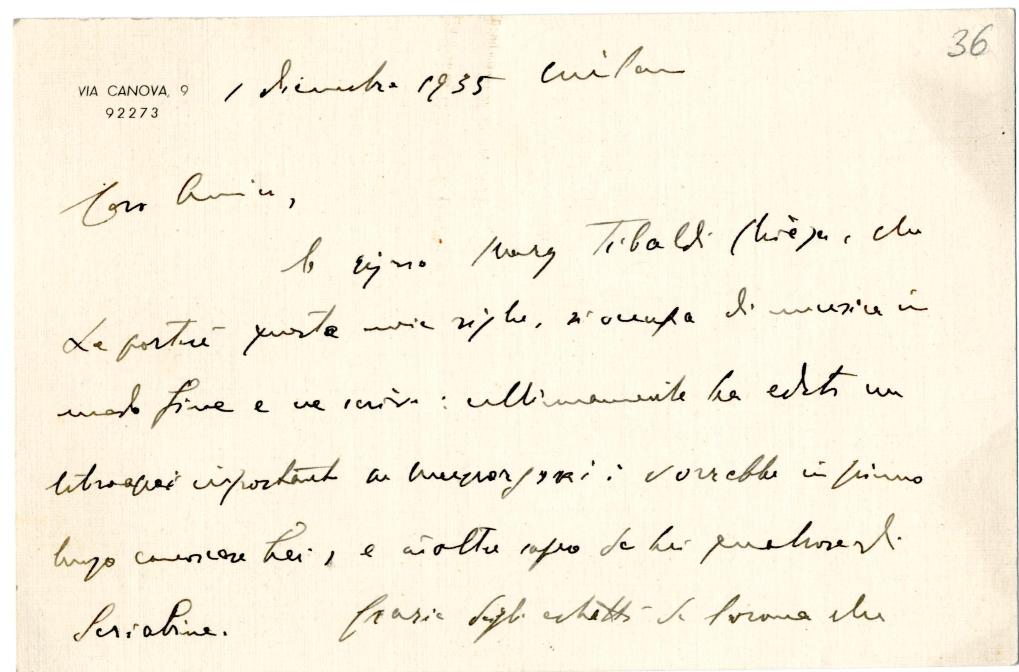 36
VIA CANOVA, 9
92273
1 dicembre 1935 Milano
Caro Amico,
la signora Mary Tibaldi Chiesa, che
Le porterà queste mie righe, si occupa di musica in
modo fine e ne scrive: ultimamente ha edito un
libro assai importante su Mussorgski: vorrebbe in primo
luogo conoscere Lei, e inoltre sapere da Lei qualcosa di
Scriabine. Grazie degli estratti da Verona che